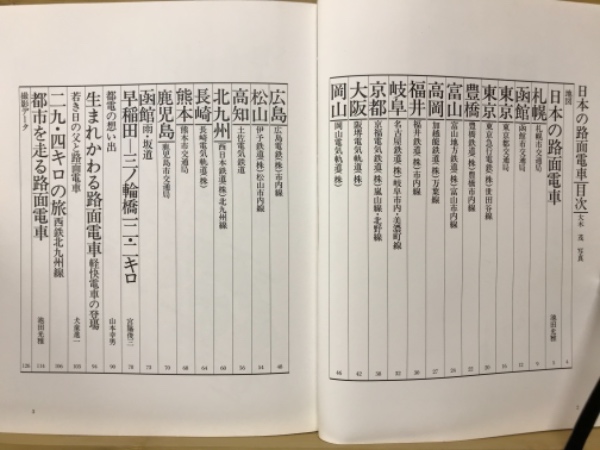 日本の路面電車 目次 大木 茂 写真
地図 4
日本の路面電車 池田光雅 5
札幌 札幌市交通局 9
函館 函館市交通局
東京 東京都交通局
東京 東京急行電鉄(株)世田谷線
豊橋 豊橋鉄道(株)豊橋市内線
富山 富山地方鉄道(株)富山市内線
高岡 加越能鉄道(株)万葉線
福井 福井鉄道(株)市内線
岐阜 名古屋鉄道(株)岐阜市内・美濃町線
京都 京福電気鉄道(株)嵐山線・北野線
大阪 阪堺電気軌道(株) 42
岡山 岡山電気軌道(株) 44
広島 広島電鉄(株)市内線
松山 伊予鉄道(株)松山市内線
高知 土佐電気鉄道
北九州 西日本鉄道(株)北九州線
長崎 長崎電気軌道(株)
熊本 熊本市交通局
鹿児島 鹿児島市交通局
函館 雨・坂道
早稲田―三ノ輪橋一二・二キロ 宮脇俊三
都電の想い出 山本幸男
生まれかわる路面電車 軽快電車の登場
若き日の父と路面電車
二九・四キロの旅 西鉄北九州線
都市を走る路面電車 池田光雅
撮影データ